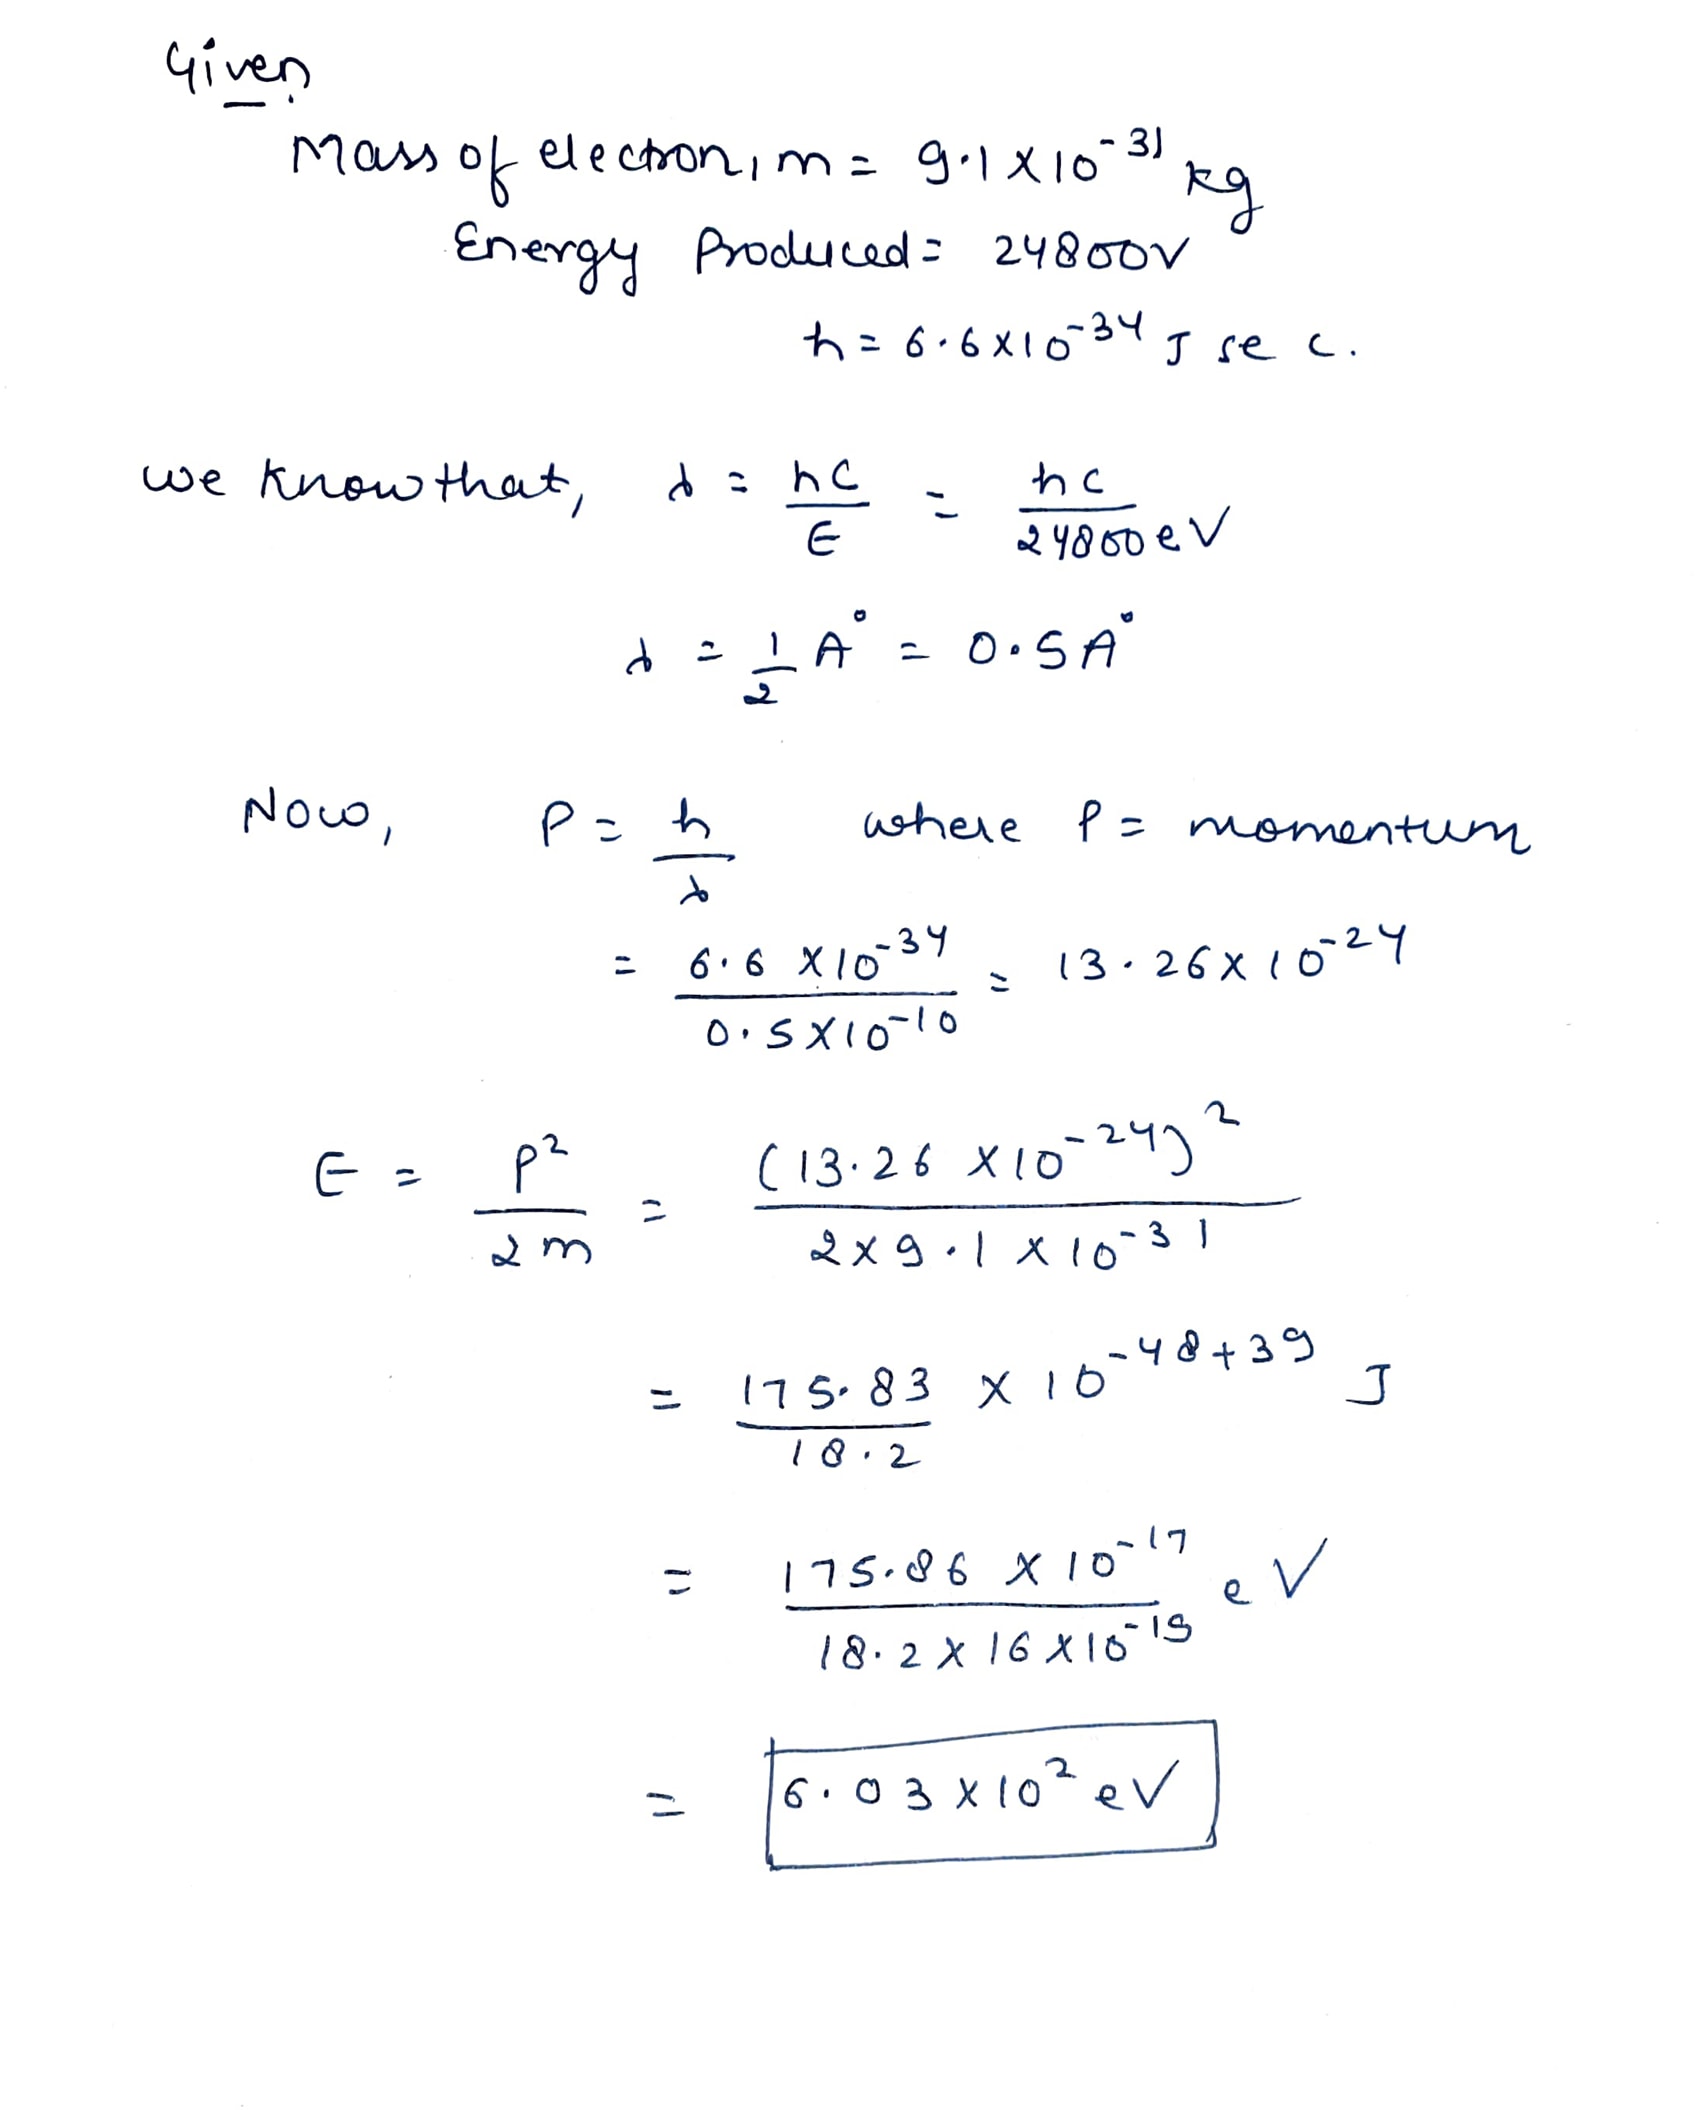 Given
Mass of electron, m = 9.1 × 10⁻³¹ kg
Energy Produced = 24800V
h = 6.6 × 10⁻³⁴ J sec.
we know that, λ = hC/E = hc/24800eV
λ = 1/2 A° = 0.5A°
Now, P = h/λ where P = momentum
= 6.6 × 10⁻³⁴/0.5 × 10⁻¹⁰ = 13.26 × 10⁻²⁴
E = P²/2m = (13.26 × 10⁻²⁴)²/2 × 9.1 × 10⁻³¹
= 175.83/18.2 × 10⁻⁴⁸⁺³⁹ J
= 175.86 × 10⁻¹⁷/18.2 × 16 × 10⁻¹⁹ eV
= 6.03 × 10² eV